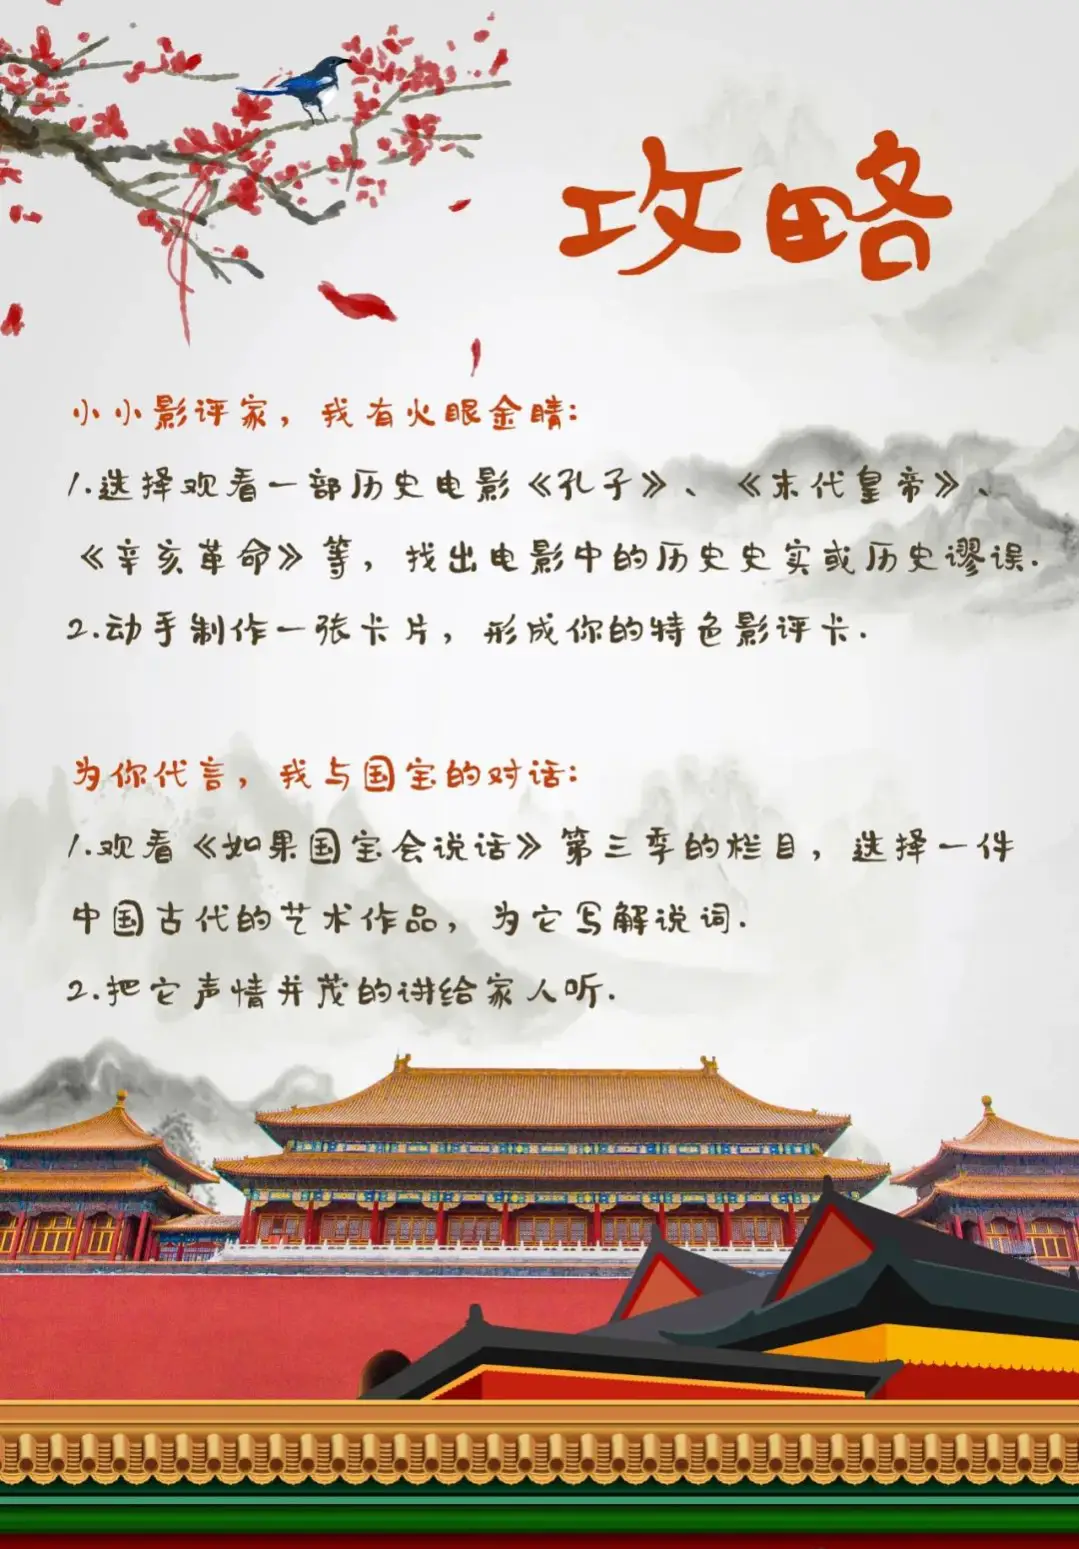 攻略
小小影评家，我有火眼金睛：
1.选择观看一部历史电影《孔子》、《末代皇帝》、
《辛亥革命》等，找出电影中的历史史实或历史谬误.
2.动手制作一张卡片，形成你的特色影评卡.
为你代言，我与国宝的对话：
1.观看《如果国宝会说话》第三季的栏目，选择一件
中国古代的艺术作品，为它写解说词.
2.把它声情并茂的讲给家人听.